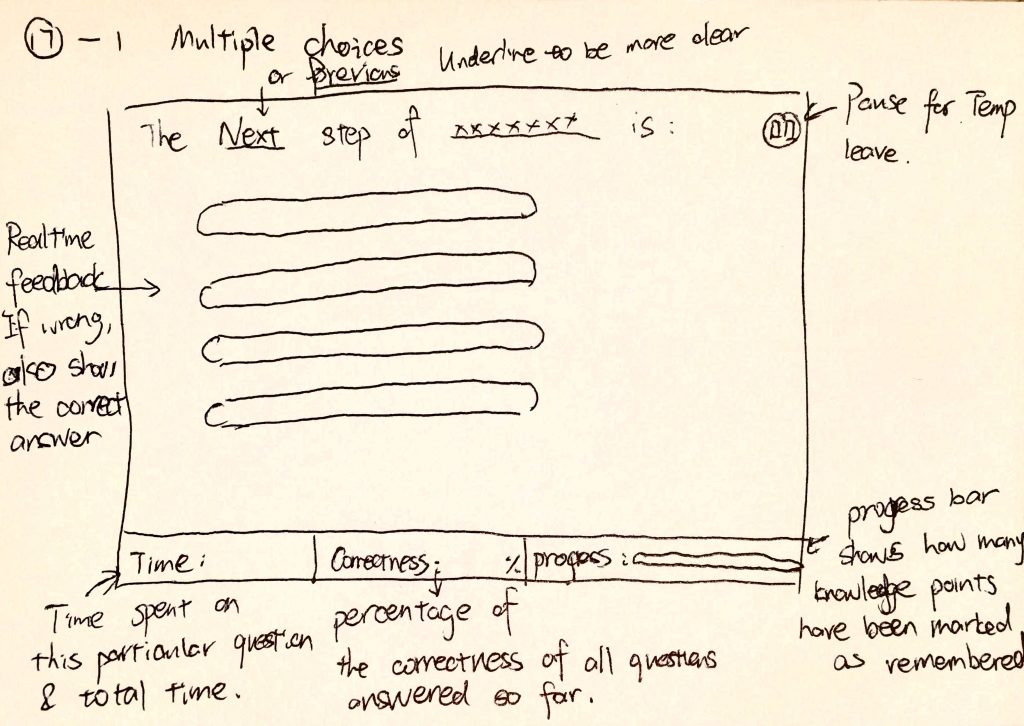 17 - 1 Multiple choices Underline to be more clear
or Previous
The Next step of xxxxxxx is:
Pause for Temp
leave.
Realtime
feedback
If wrong,
also show
the correct
answer
Time: Correctness: % progess:
Time spent on
this particular question
& total time.
percentage of
the correctness of all questions
answered so far.
progess bar
shows how many
knowledge points
have been marked
as remembered